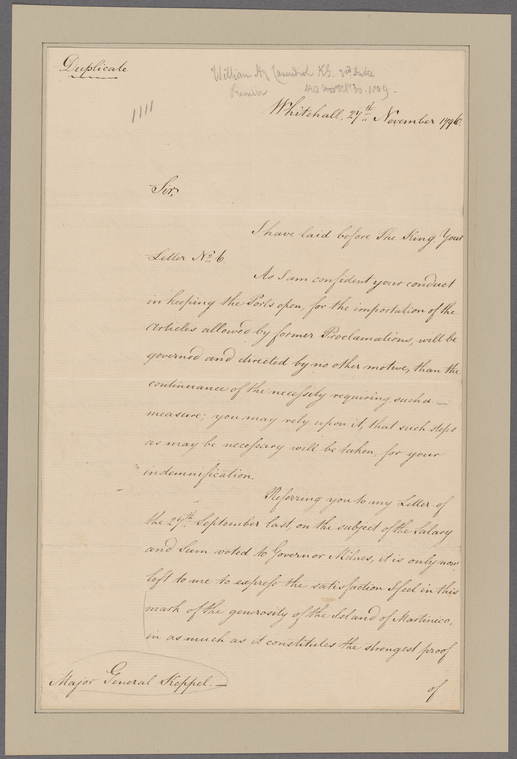 Duplicate
William H. Cavendish K.G. 3rd Duke
Premier
Oct. 30. 1809.
Whitehall, 27th November 1796.
Sir,
I have laid before The King Your
Letter No. 6.
As I am confident your conduct
in keeping the Ports open, for the importation of the
Articles allowed by former Proclamations, will be
governed and directed by no other motive, than the
continuance of the necessity requiring such a
measure; you may rely upon it, that such steps
as may be necessary will be taken, for your
indemnification.
Referring you to my Letter of
the 27th September last, on the subject of the Salary
and Sum voted to Governor Milnes, it is only now
left to me to express the satisfaction I feel in this
mark of the generosity of the Island of Martinico,
in as much as it constitutes the strongest proof
Major General Keppel.
of